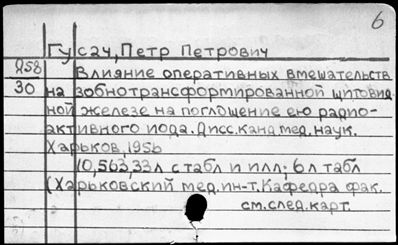 6
Гусач, Петр Петрович
Я58 Влияние оперативных вмешательств
30 на зобнотрансформированной щитовид-
ной железе на поглощение ею радио-
активного иода. Дисс. канд. мед. наук.
Харьков, 1956
10, 563, 33 л с табл и илл; 6 л табл
(Харьковский мед. ин-т. Кафедра фак.
см. след. карт.